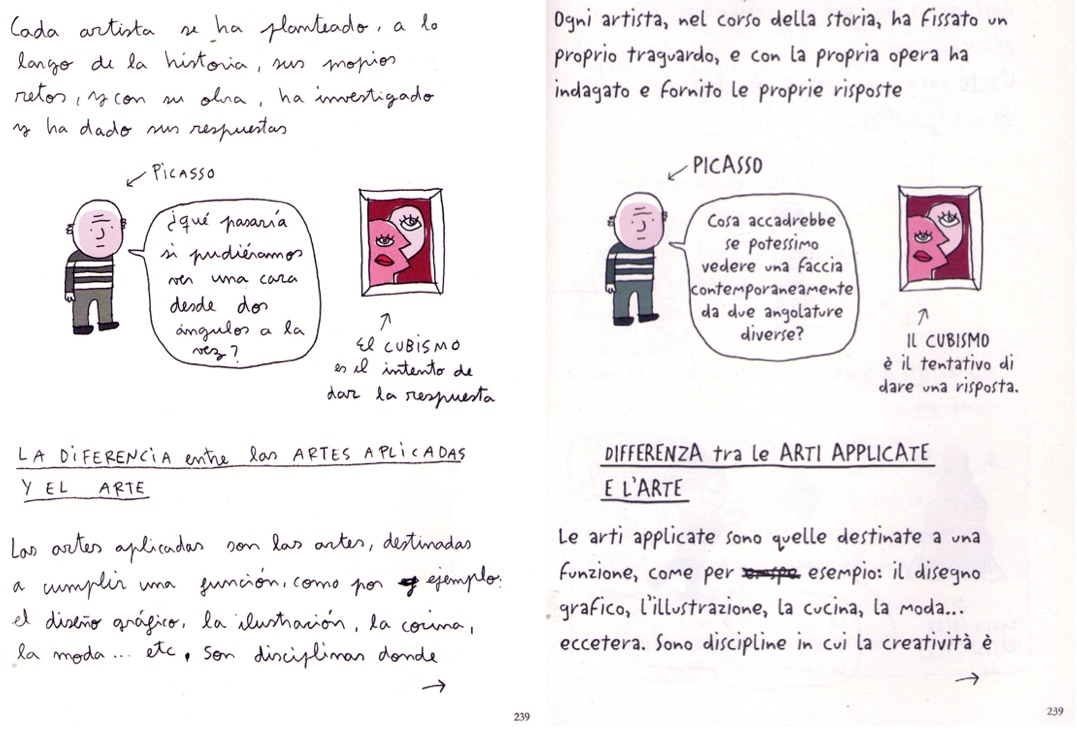 Cada artista se ha planteado, a lo
largo de la historia, sus propios
retos, y con su obra, ha investigado
y ha dado sus respuestas
PICASSO
¿qué pasaría
si pudiéramos
ver una cara
desde dos
ángulos a la
vez?
El CUBISMO
es el intento de
dar la respuesta
LA DIFERENCIA entre las ARTES APLICADAS
Y EL ARTE
Las artes aplicadas son las artes, destinadas
a cumplir una función, como por ejemplo:
el diseño gráfico, la ilustración, la cocina,
la moda... etc, son disciplinas donde
→
239
Ogni artista, nel corso della storia, ha fissato un
proprio traguardo, e con la propria opera ha
indagato e fornito le proprie risposte
PICASSO
Cosa accadrebbe
se potessimo
vedere una faccia
contemporaneamente
da due angolature
diverse?
IL CUBISMO
è il tentativo di
dare una risposta.
DIFFERENZA tra le ARTI APPLICATE
E L'ARTE
Le arti applicate sono quelle destinate a una
funzione, come per esempio: il disegno
grafico, l'illustrazione, la cucina, la moda...
eccetera. Sono discipline in cui la creatività è
→
239